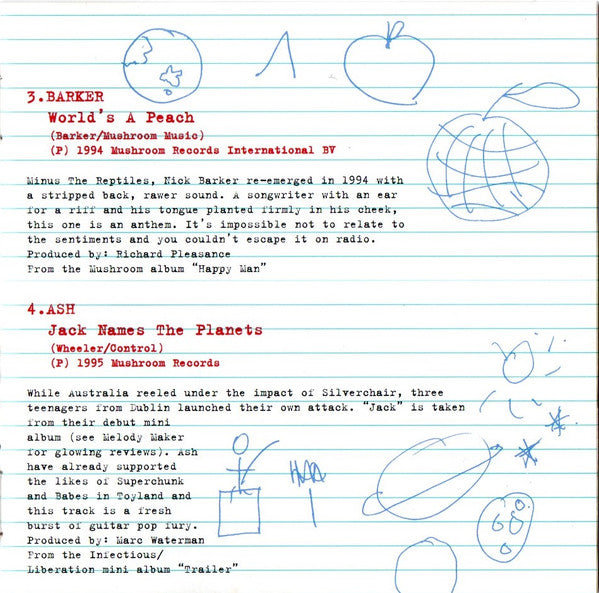 3.BARKER
World's A Peach
(Barker/Mushroom Music)
(P) 1994 Mushroom Records International BV
Minus The Reptiles, Nick Barker re-emerged in 1994 with
a stripped back, rawer sound. A songwriter with an ear
for a riff and his tongue planted firmly in his cheek,
this one is an anthem. It's impossible not to relate to
the sentiments and you couldn't escape it on radio.
Produced by: Richard Pleasance
From the Mushroom album "Happy Man"
4.ASH
Jack Names The Planets
(Wheeler/Control)
(P) 1995 Mushroom Records
While Australia reeled under the impact of Silverchair, three
teenagers from Dublin launched their own attack. "Jack" is taken
from their debut mini
album (see Melody Maker
for glowing reviews). Ash
have already supported
the likes of Superchunk
and Babes in Toyland and
this track is a fresh
burst of guitar pop fury.
Produced by: Marc Waterman
From the Infectious/
Liberation mini album "Trailer"